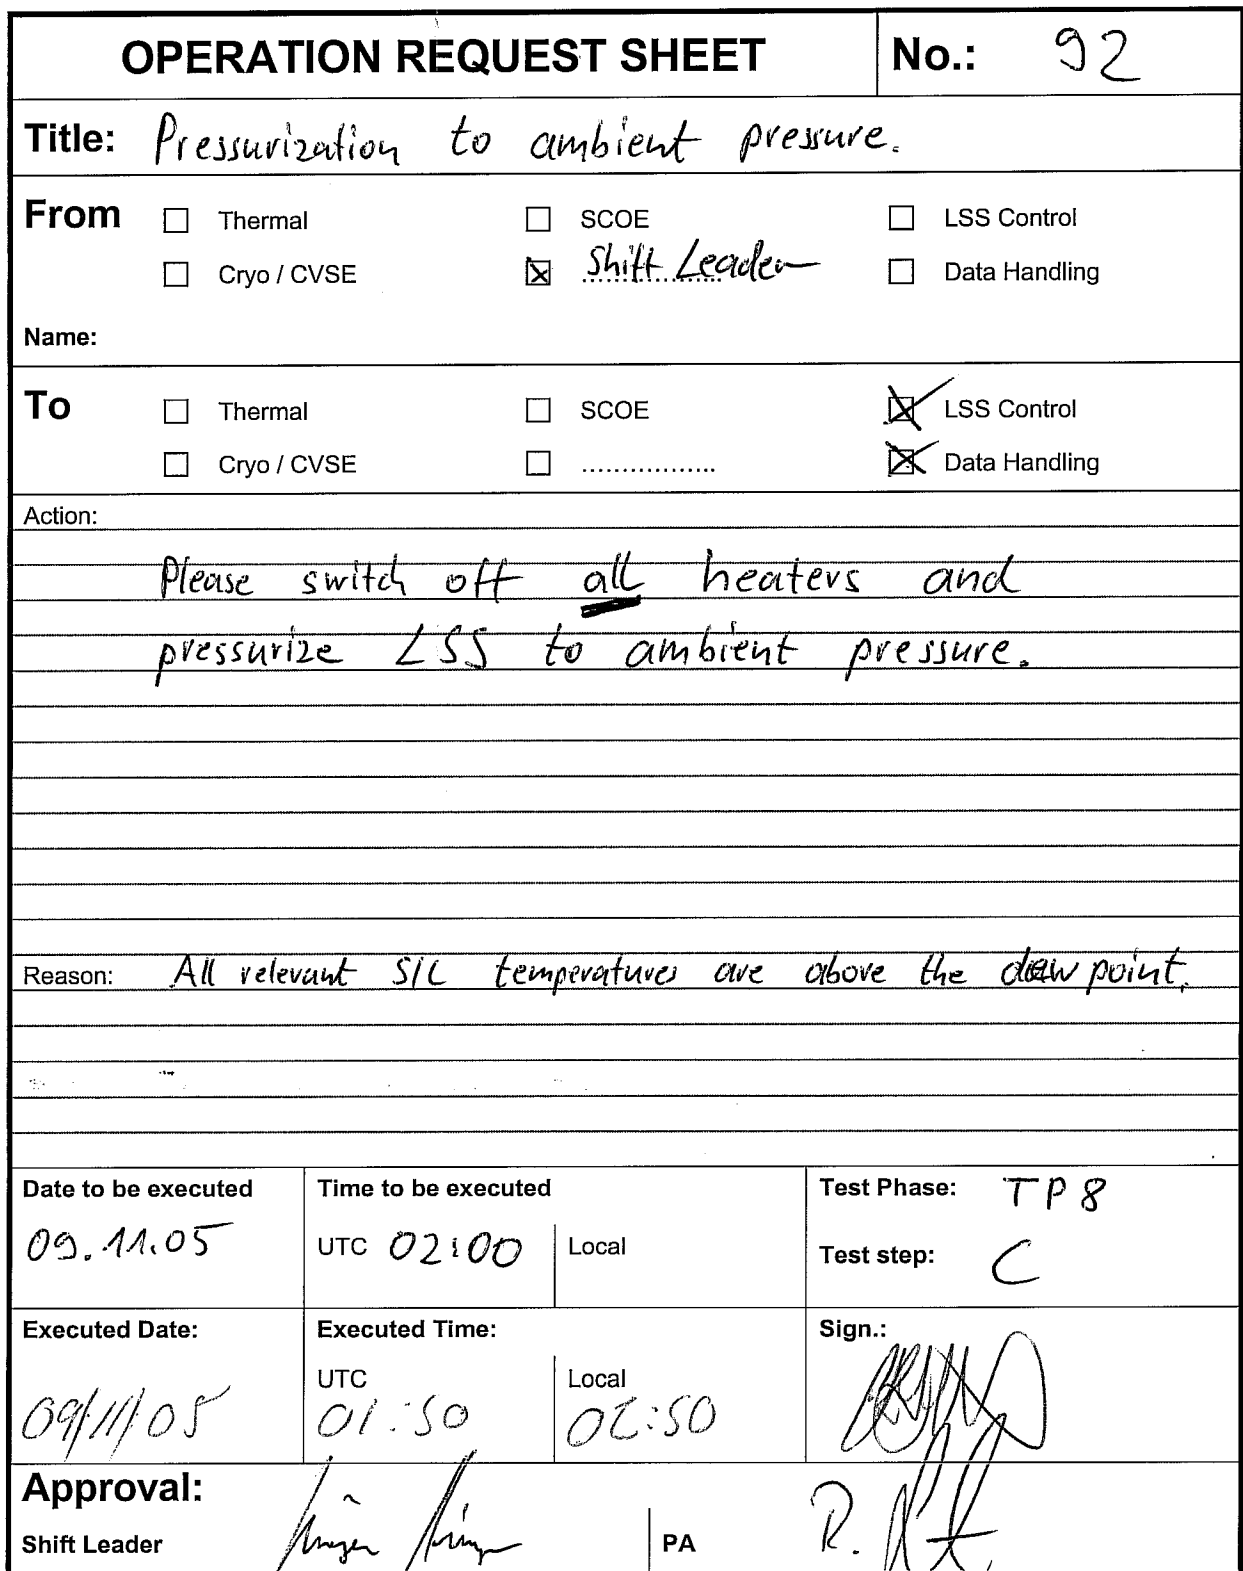 OPERATION REQUEST SHEET No.: 92
Title: Pressurization to ambient pressure.
From Thermal SCOE LSS Control
Cryo / CVSE Shift Leader Data Handling
Name:
To Thermal SCOE LSS Control
Cryo / CVSE ................. Data Handling
Action:
Please switch off all heaters and
pressurize LSS to ambient pressure.
Reason: All relevant S/C temperatures are above the dew point.
Date to be executed Time to be executed Test Phase: TP8
09.11.05 UTC 02:00 Local Test step: C
Executed Date: Executed Time: Sign.:
UTC Local
09/11/05 01:50 02:50
Approval:
Shift Leader PA R.